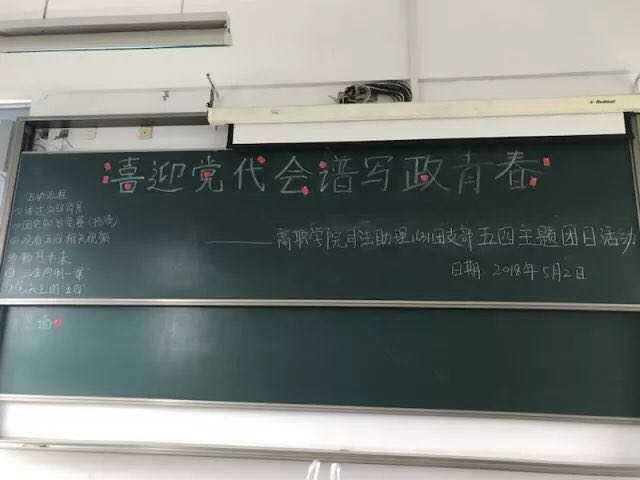 Redleaf
喜迎党代会谱写政青春
——高职学院司法助理1631团支部五四主题团日活动
日期:2018年5月2日
活动流程
讲述五四背景
团史知识竞赛(抢答)
观看五四相关视频
畅想未来
三会两制一课